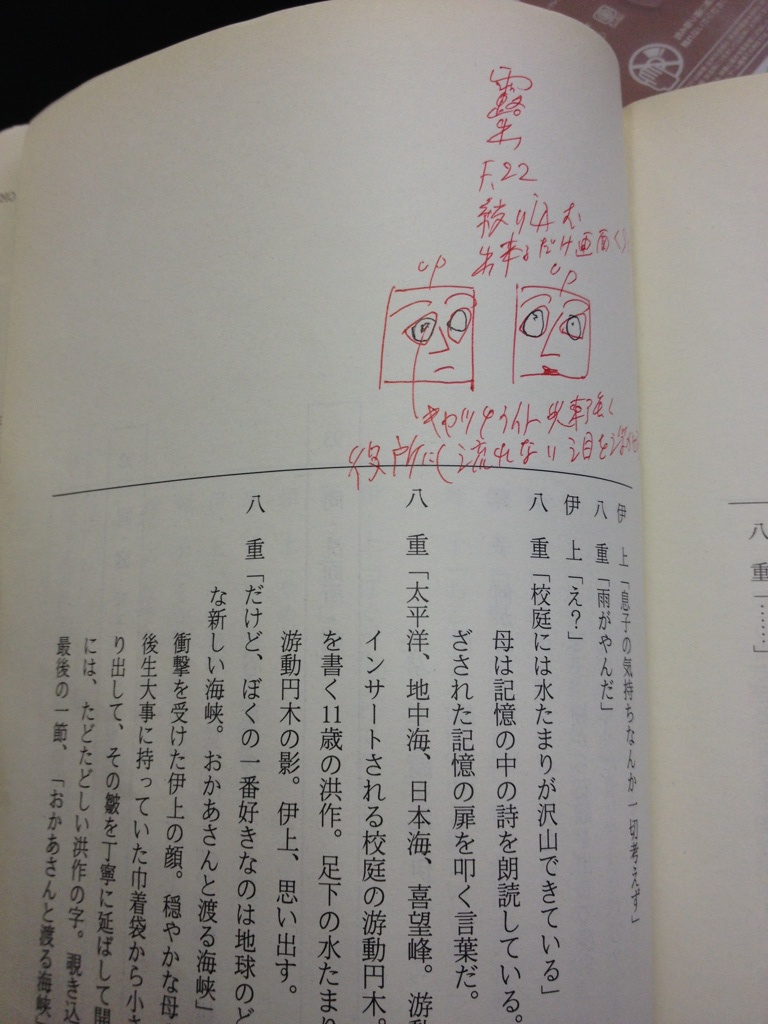 露出
F.22
絞り込む
出来るだけ画面く
up
up
キャッチライト
役所にし流れない泪を
伊　上「息子の気持ちなんか一切考えず」
八　重「雨がやんだ」
伊　上「え？」
八　重「校庭には水たまりが沢山できている」
母は記憶の中の詩を朗読している。
ざされた記憶の扉を叩く言葉だ。
八　重「太平洋、地中海、日本海、喜望峰。游動
インサートされる校庭の游動円木。
を書く11歳の洪作。足下の水たまり
游動円木の影。伊上、思い出す。
八　重「だけど、ぼくの一番好きなのは地球のど
な新しい海峡。おかあさんと渡る海峡」
衝撃を受けた伊上の顔。穏やかな母
後生大事に持っていた巾着袋から小さ
り出して、その皺を丁寧に延ばして開
には、たどたどしい洪作の字。覗き込
最後の一節、「おかあさんと渡る海峡」
八　重「……」